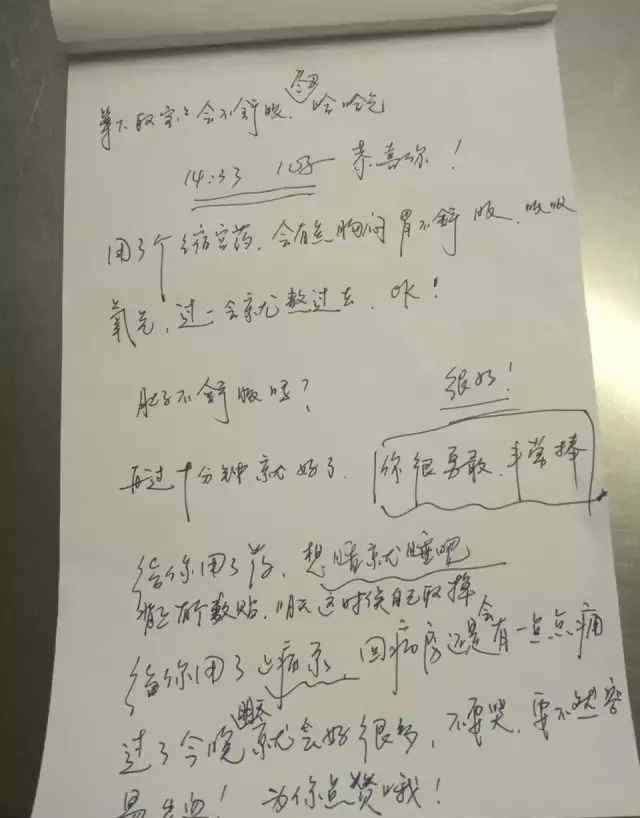 等下取宝宝会不舒服，尽量哈哈气
14:33 恭喜你！
用了个缩宫药，会有点胸闷胃不舒服，吸吸
氧气，过一会就熬过去，OK！
肚子不舒服吗？
很好！
再过十分钟就好了
你很勇敢，非常棒
给你用了药，想睡就睡吧
背上有个敷贴，明天这时侯自己取掉
给你用了止痛泵，回病房还是会有一点点痛
过了今晚，明天就会好很多，不要哭，要不然容
易出血！为你点赞哦！